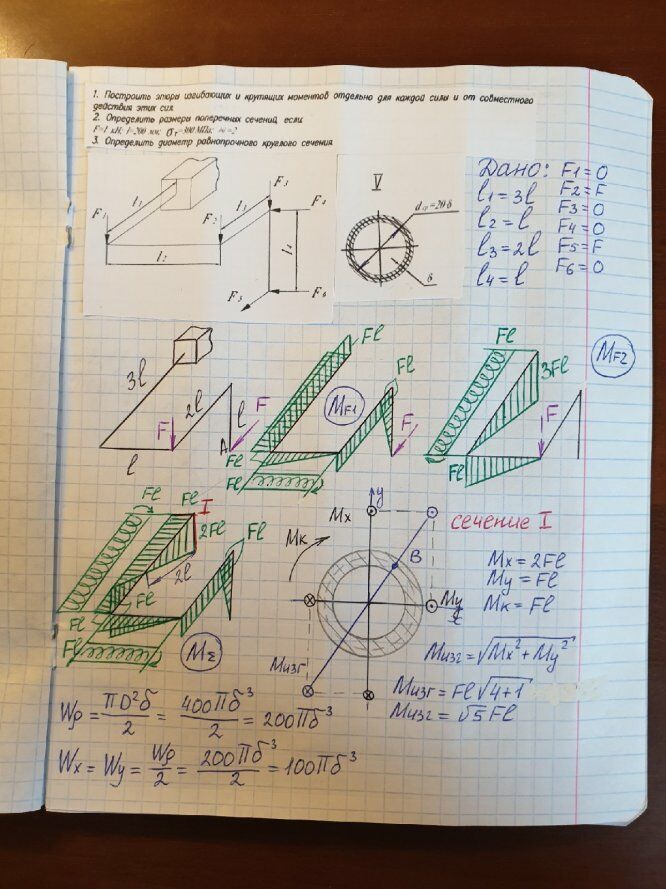 1. Построить эпюры изгибающих и крутящих моментов отдельно для каждой силы и от совместного
действия этих сил
2. Определить размеры поперечных сечений, если
F=1 кН; l=200 мм; σт=300 МПа; n=2
3. Определить диаметр равнопрочного круглого сечения
F₁
l₁
l₂
F₂
l₃
F₃
F₄
l₄
F₅
F₆
V
dср=20δ
δ
Дано:
l₁=3l
l₂=l
l₃=2l
l₄=l
F1=0
F2=F
F3=0
F4=0
F5=F
F6=0
3l
l
F
2l
A
l
F
Fl
Fl
Fl
Fl
MF1
F
Fl
3Fl
Fl
F
MF2
Fl
Fl
I
2Fl
2l
Fl
Fl
Fl
Fl
MΣ
Mк
Mx
y
B
My
x
Mизг
сечение I
Mx = 2Fl
My = Fl
Mк = Fl
Mизг = √Mx² + My²
Mизг = Fl√4+1
Mизг = √5 Fl
Wp = πD²δ/2 = 400πδ³/2 = 200πδ³
Wx = Wy = Wp/2 = 200πδ³/2 = 100πδ³